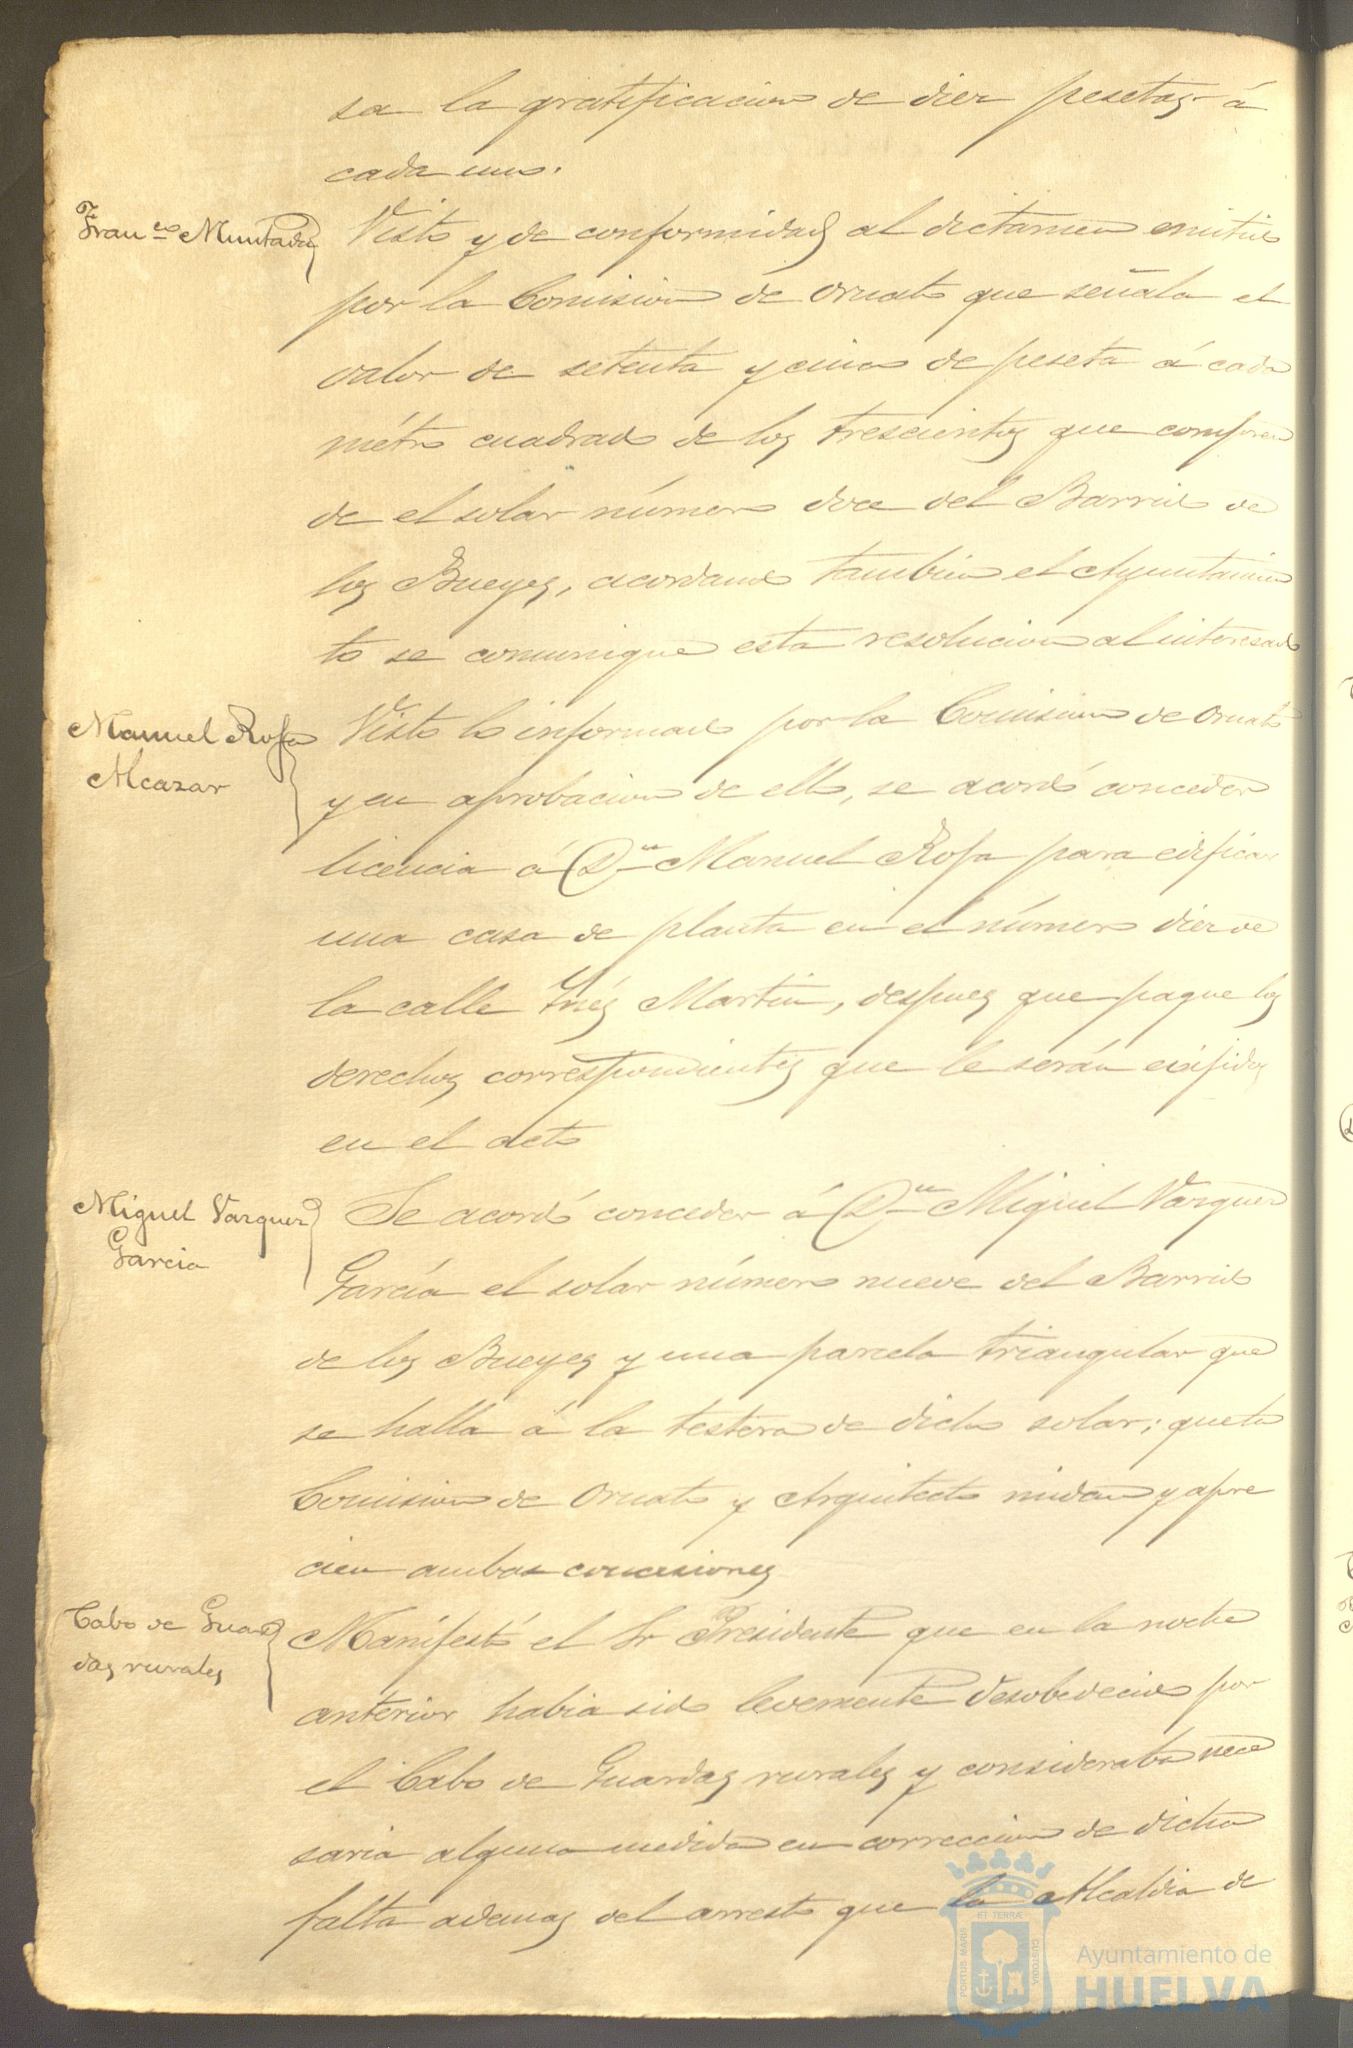 sa la gratificacion de diez pesetas á
cada uno.
Franco Muntadas
Visto y de conformidad al dictamen emitido
por la Comision de Ornato que señala el
valor de setenta y cinco de peseta á cada
métro cuadrado de los trescientos que compren
de el solar número doce del Barrio de
los Bueyes, acordando tambien el Ayuntamien
to se comunique esta resolucion al interesado
Manuel Rofa
Alcazar
Visto lo informado por la Comision de Ornato
y en aprobacion de ello, se acordó conceder
licencia á Dn Manuel Rofa para edificar
una casa de planta en el número diez de
la calle Inés Martin, despues que pague los
derechos correspondientes que le serán exijidos
en el acto
Miguel Vazquez
Garcia
Se acordó conceder á Dn Miguel Vazquez
García el solar número nueve del Barrio
de los Bueyes y una parcela triangular que
se halla á la testera de dicho solar; que la
Comision de Ornato y Arquitecto midan y apre
cien ambas concesiones
Cabo de Guar
das rurales
Manifestó el Sr Presidente que en la noche
anterior habia sido levemente desobedecido por
el Cabo de Guardas rurales y consideraba nece
saria alguna medida en correccion de dicha
falta ademas del arresto que la Alcaldia de
ET TERRÆ
PORTUS MARIS
CUSTODIA
Ayuntamiento de
HUELVA